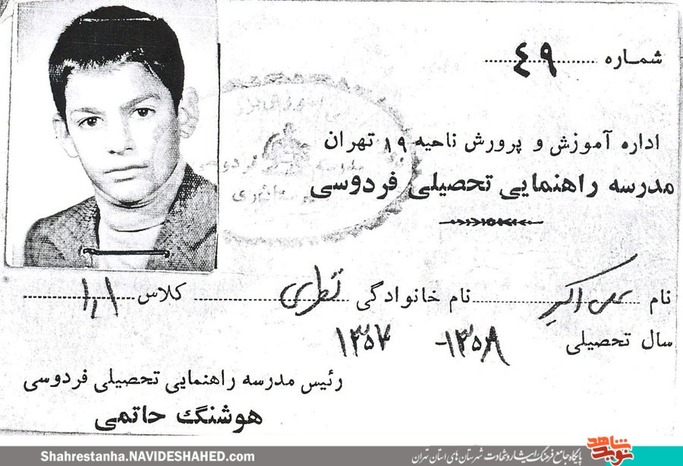 شماره ۴۹
اداره آموزش و پرورش ناحیه ۱۹ تهران
مدرسه راهنمایی تحصیلی فردوسی
نام علی اکبر نام خانوادگی قطری کلاس ۱٫۱
سال تحصیلی ۱۳۵۸ - ۱۳۵۷
رئیس مدرسه راهنمایی تحصیلی فردوسی
هوشنگ حاتمی
نوید شاهد
پایگاه جامع فرهنگ ایثار و شهادت شهرستان های استان تهران
Shahrestanha.NAVIDESHAHED.com